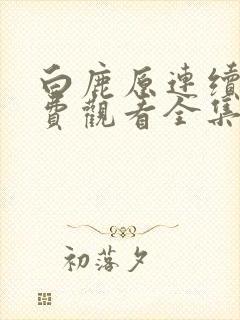 白鹿原連續
費觀看全集
初落夕